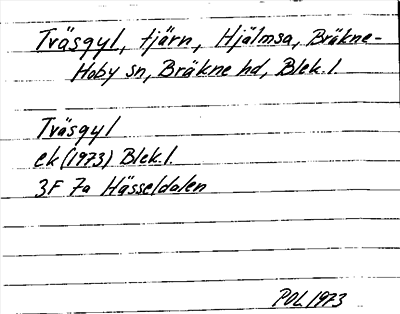 Tväsgyl, tjärn, Hjälmsa, Bräkne-
Hoby sn, Bräkne hd, Blek. l.
Tväsgyl
ek (1973) Blek. l.
3F 7a Hässeldalen
POL 1973